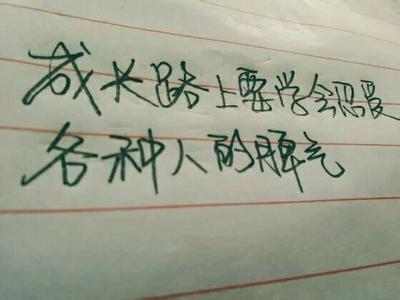 成长路上要学会忍受
各种人的脾气